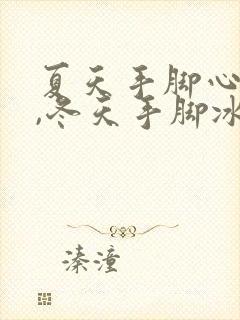 夏天手脚心
,冬天手脚冰
溱潼